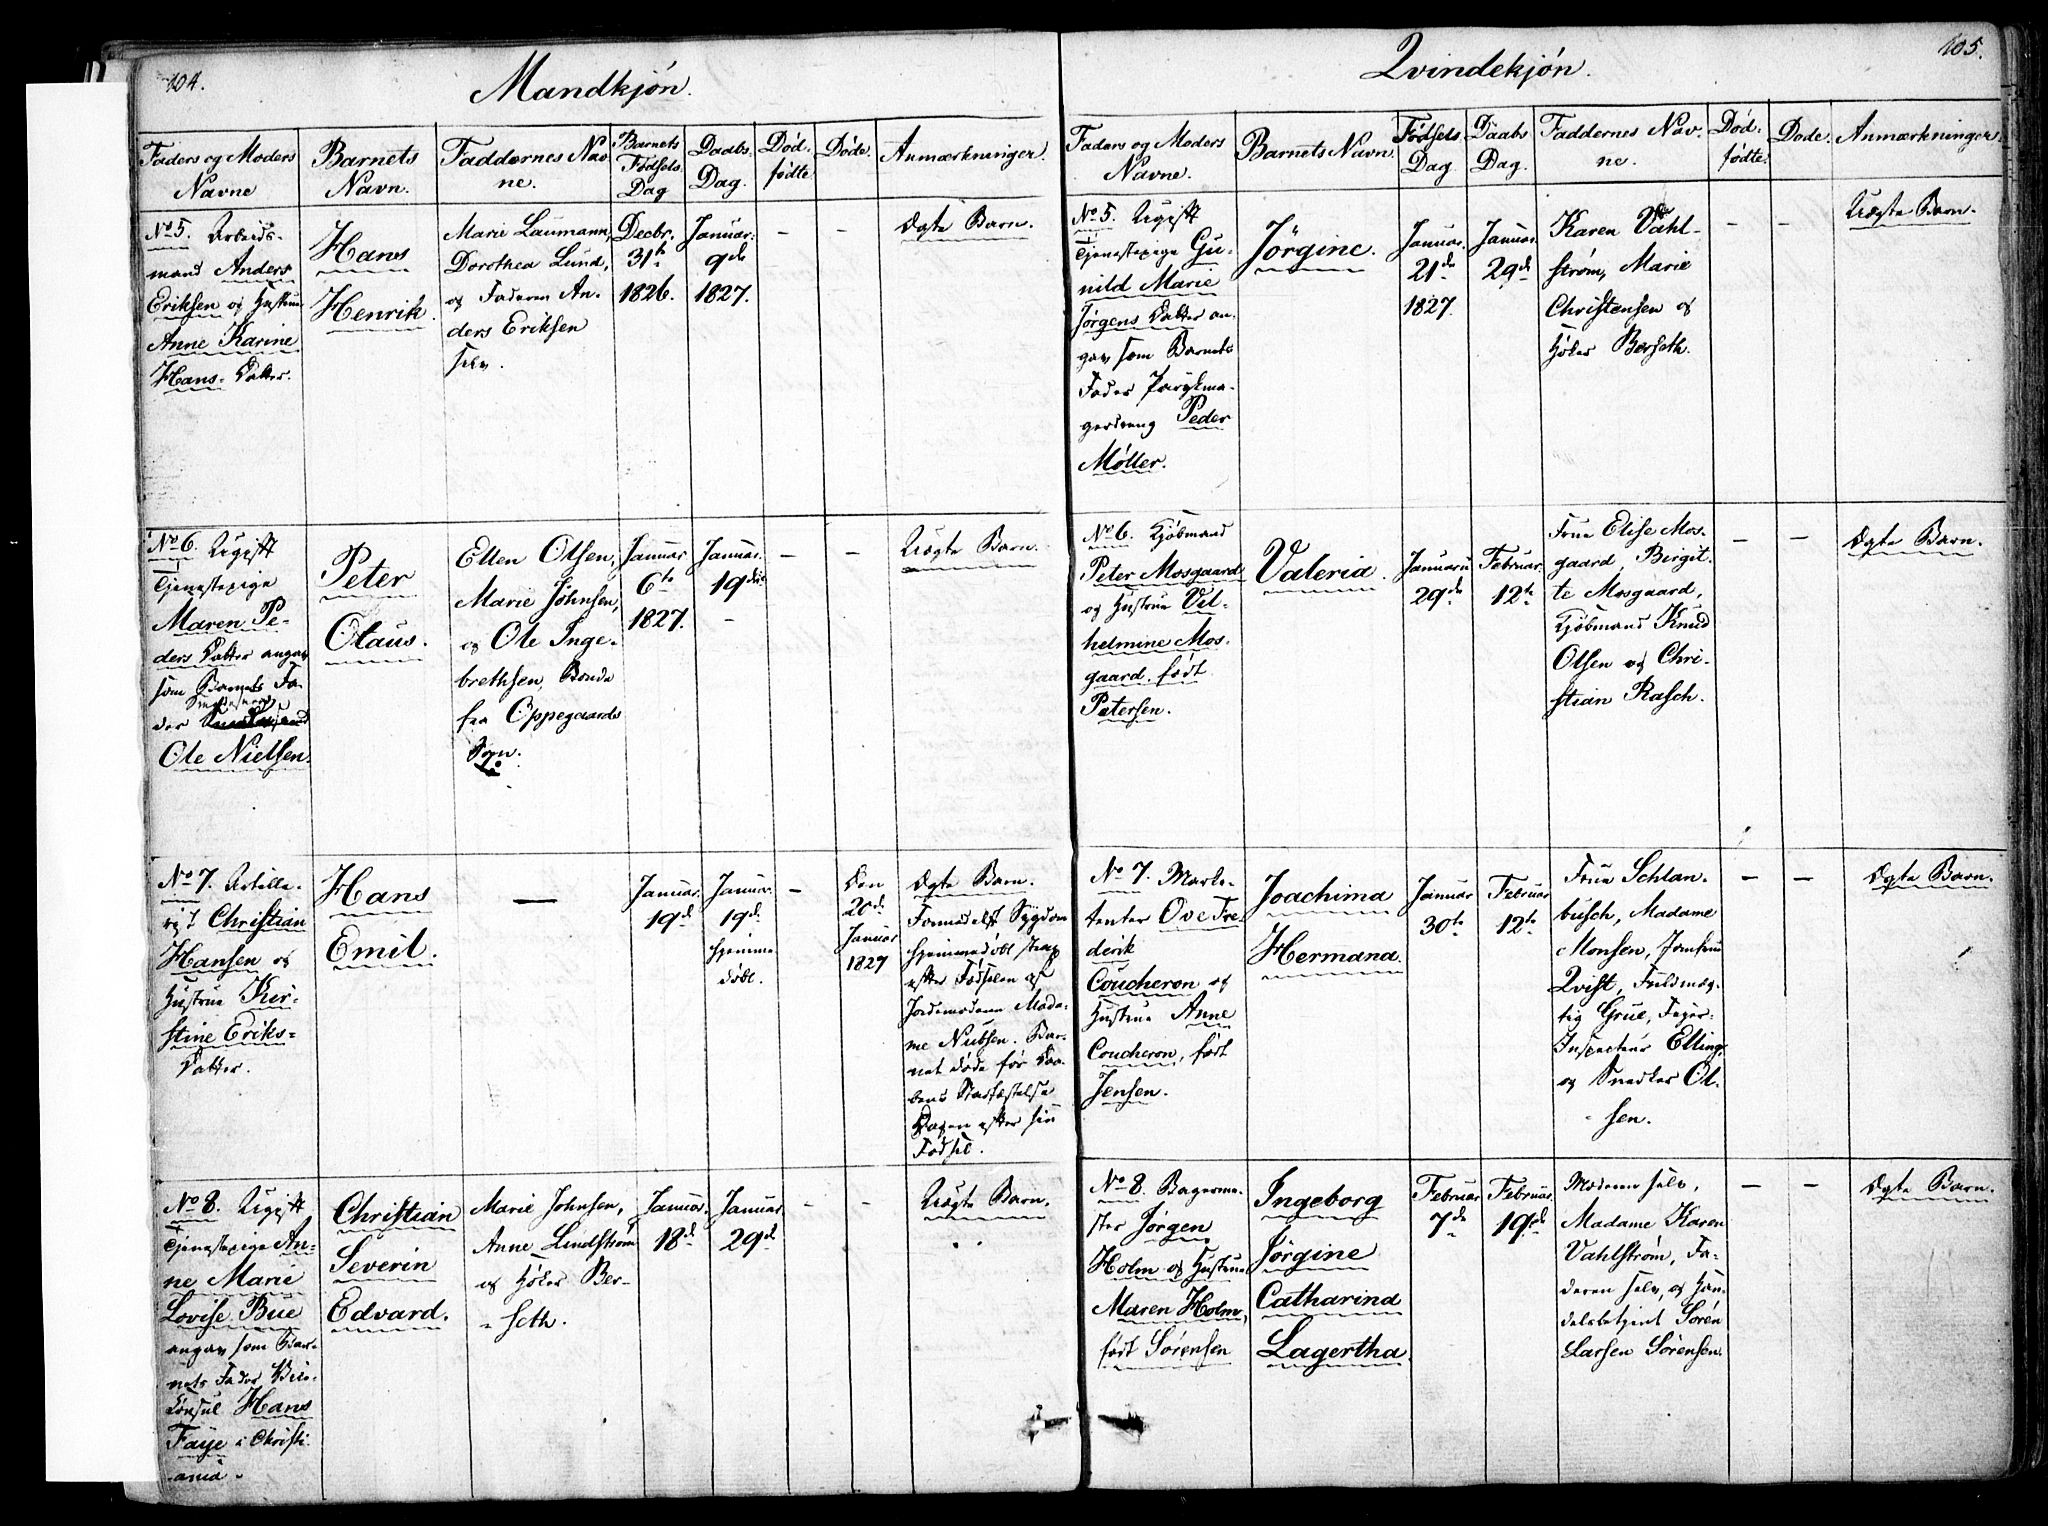 104.
Mandkjøn.
Faders og Moders
Navne
Barnets
Navn.
Faddernes Nav
ne.
Barnets
Fødsels
Dag
Daabs.
Dag.
Død.
fødte
Døde.
Anmærkninger.
No 5. Arbeids-
mand Anders
Eriksen og Hustrue
Anne Karine
Hans- Datter.
Hans
Henrik.
Marie Laumann,
Dorothea Lund,
og Faderen An-
ders Eriksen
selv.
Decbr.
31te
1826.
Januar:
9de
1827.
–
–
Ægte Barn.
No 6. Ugift
Tjenestepige
Maren Pe-
ders Datter angav
som Barnets Fa-
der
Ole Nielsen.
Peter
Olaus.
Ellen Olsen,
Marie Johnsen,
og Ole Inge-
brethsen, Bonde
fra Oppegaards
Sogn.
Januar
6te
1827.
Januar.
19de
–
–
–
Uægte Barn.
No 7. Artille-
rist Christian
Hansen og
Hustrue Kir-
stine Eriks-
Datter.
Hans
Emil.
—
Januar.
19de
Januar.
19de
hjemme
døbt.
–
Den
20de
Januar
1827
Ægte Barn.
Formedelst Sygdom
hjemmedøbt strax
efter Fødselen af
Jordemoderen Mada-
me Nielsen. Bar-
net døde før Daa-
bens Stadfæstelse
Dagen efter sin
Fødsel.
No 8. Ugift
Tjenestepige An-
ne Marie
Lovise Bue
angav som Bar-
nets Fader Vice-
Consul Hans
Faye i Christi-
ania.
Christian
Severin
Edvard.
Marie Johnsen,
Anne Lindstrøm
og Høker Ber-
seth.
Januar.
18de
Januar
29de
–
–
Uægte Barn.
105.
Qvindekjøn.
Faders og Moders
Navne.
Barnets Navn.
Fødsels
Dag.
Daabs
Dag.
Faddernes Nav-
ne.
Død-
fødte.
Døde.
Anmærkninger.
No 5. Ugift
Tjenestepige Gu-
nild Marie
Jørgens Datter an-
gav som Barnets
Fader Parykma-
gersvend Peder
Møller.
Jørgine.
Januar.
21de
1827.
Januar.
29de
Karen Vahl-
strøm, Marie
Christensen og
Høker Berseth.
–
–
Uægte Barn.
No 6. Kjøbmand
Peter Mosgaard
og Hustrue Vil-
helmine Mos-
gaard, født
Petersen.
Valeria.
Januari
29de
Februar.
12te
Frue Elise Mos-
gaard, Birgit-
te Mosgaard,
Kjøbmand Knud
Olsen og Chri-
stian Rasch.
–
–
Ægte Barn.
No 7. Marke-
tenter Ove Fre-
derik
Coucheron og
Hustrue Anne
Coucheron, født
Jensen.
Joachima
Hermana.
Januar
30te
Februar
12te
Frue Schlan-
busch, Madame
Monsen, Jomfrue
Qvist, Fuldmæg-
tig Grue,
Inspecteur Elling,
og Snedker Ol-
sen.
–
–
Ægte Barn.
No 8. Bagerme-
ster Jørgen
Holm og Hustrue
Maren Holm,
født Sørensen
Ingeborg
Jørgine
Catharina
Lagertha.
Februar
7de
Februar.
19de
Moderen selv,
Madame Karen
Vahlstrøm, Fa-
deren selv, og Han-
delsbetjent Søren
Larsen Sørensen.
–
–
Ægte Barn.